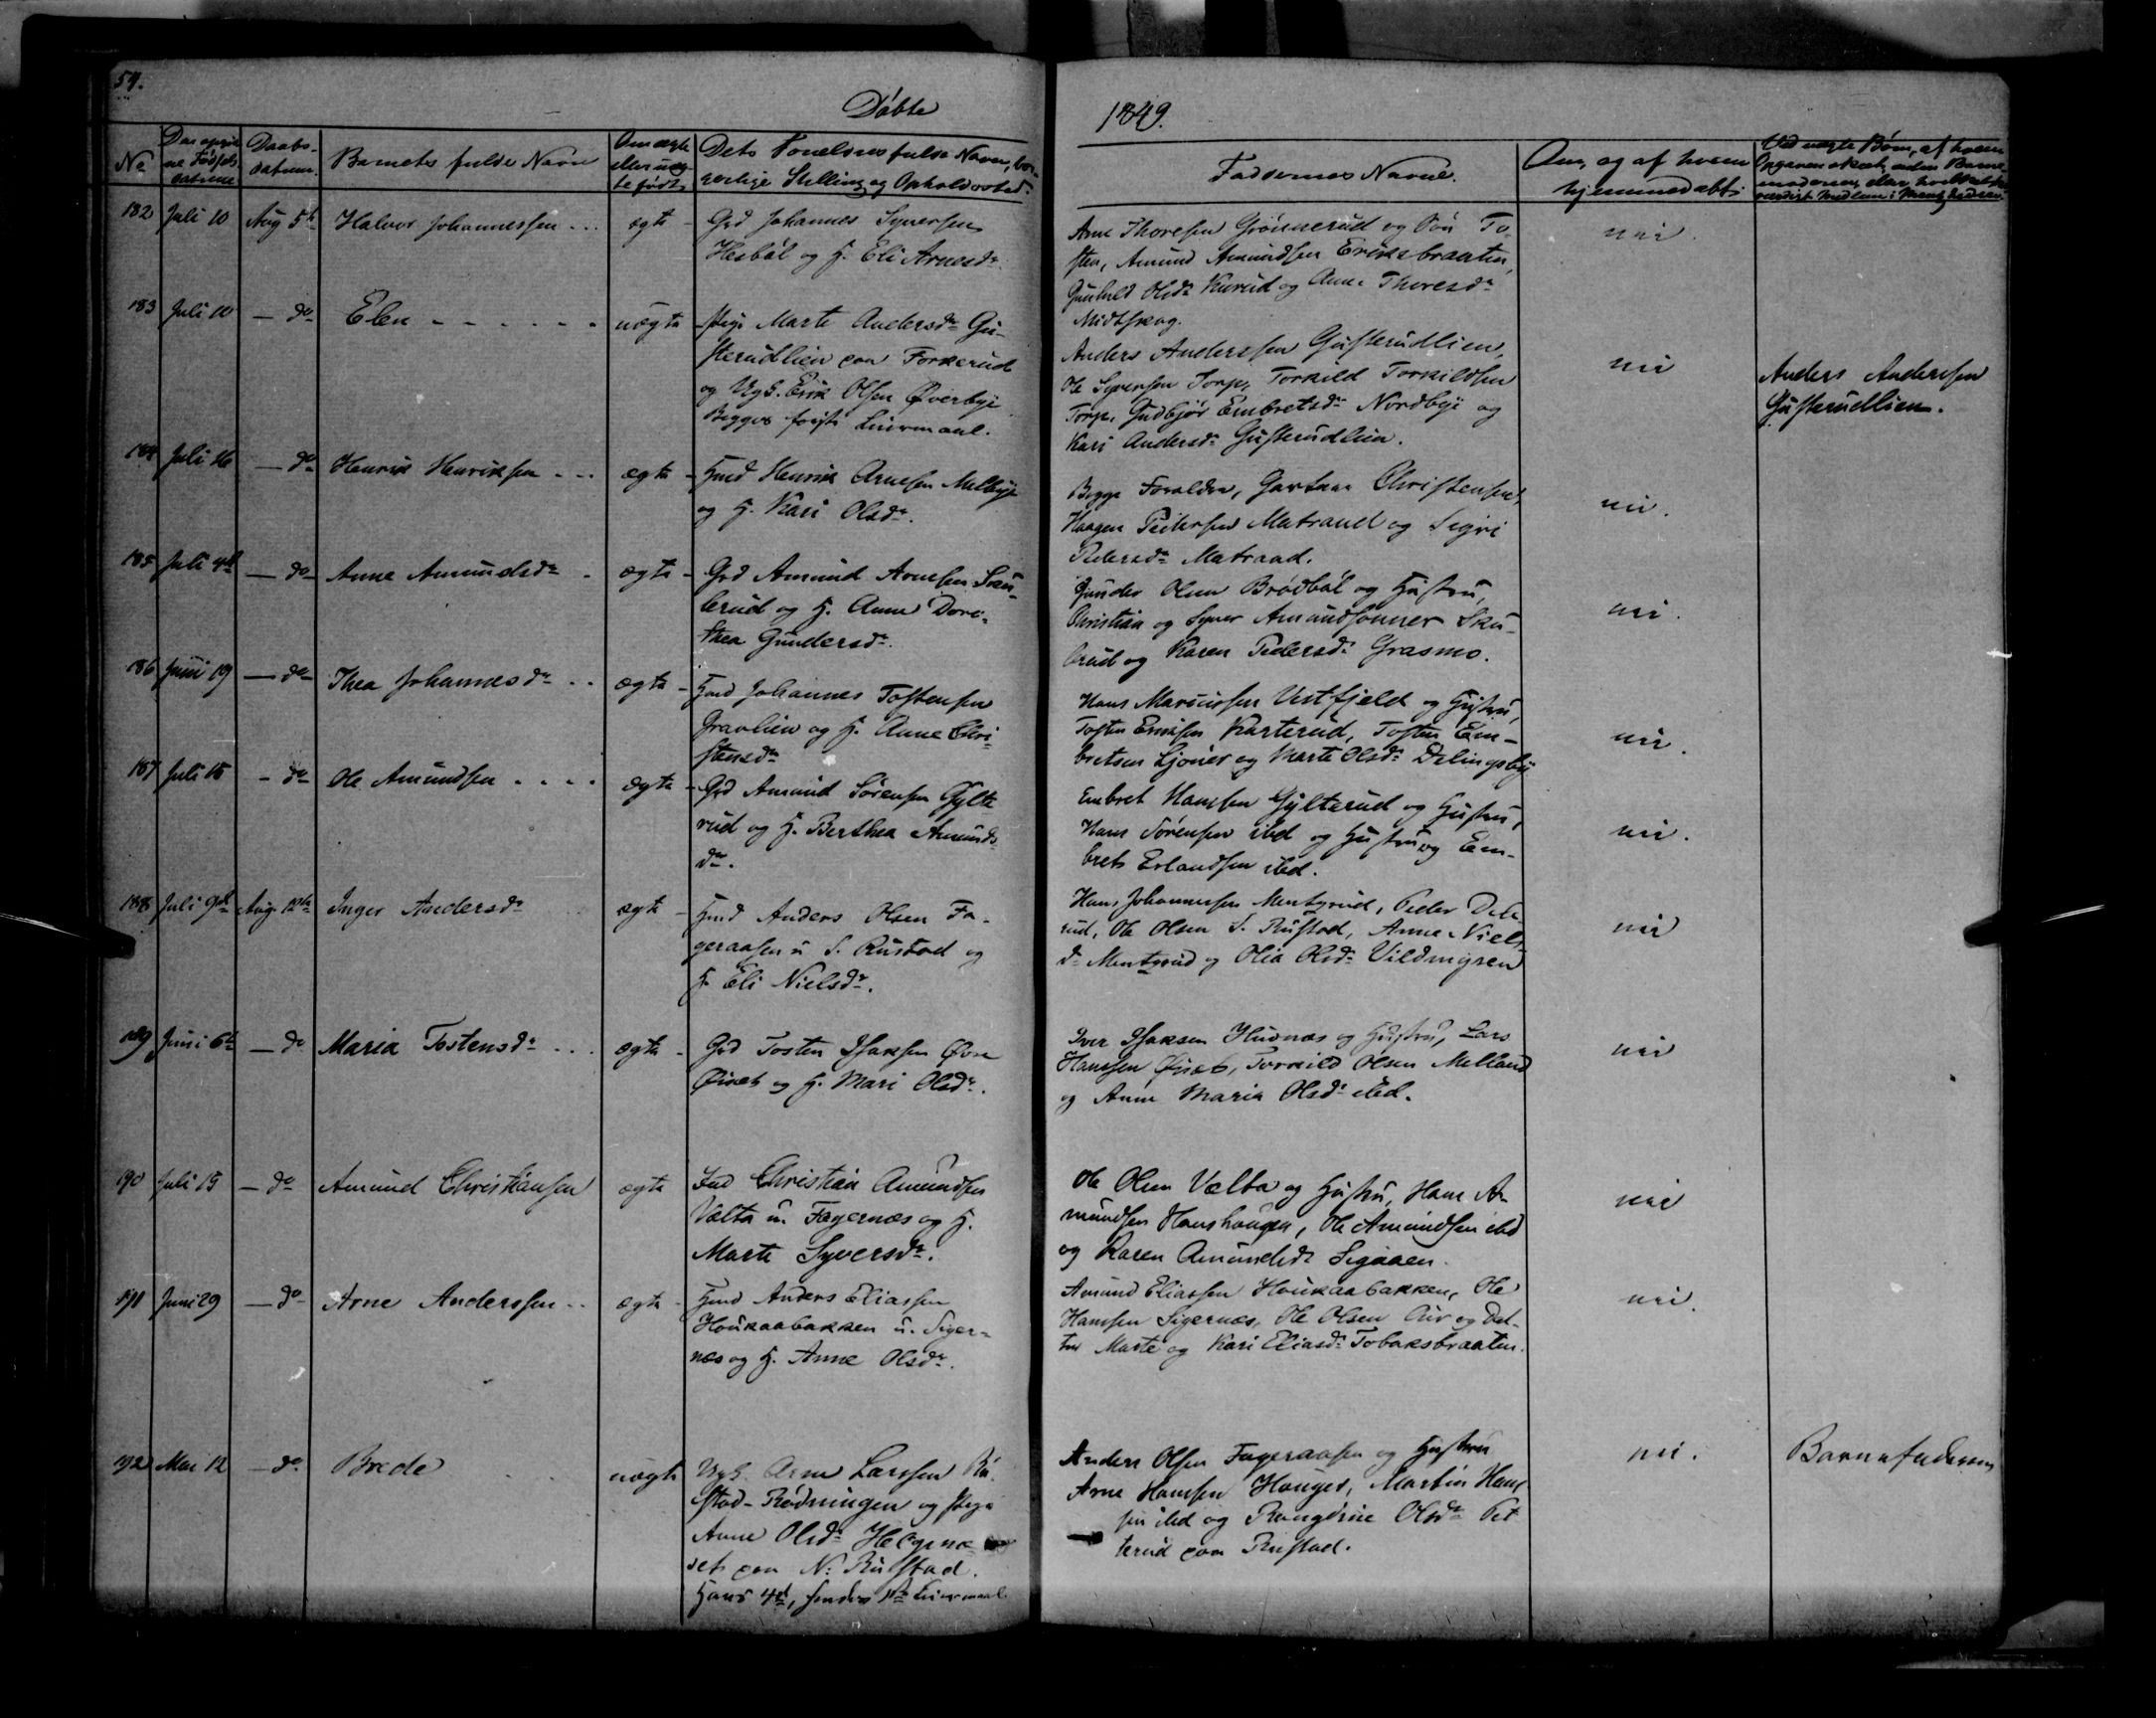 54.
Døbte
1849.
No
Daabs-
datum.
Barnets fulde Navn
Om ægte
eller uæg-
te født
Dets Forældres fulde Navn, bor-
gerlige Stilling og Opholdssted.
Faddernes Navne.
Om, og af hvem
hjemmedøbt
182 Juli 10 Aug 5te Halvor Johannessen ægte
Grd Johannes Syversen
Hesbøl og H. Eli Arnesdr
Arne Thoresen Grønnerud og Søn To-
sten, Amund Amundsen Eriksbraaten,
Gunhild Olsdr Kurud og Anne Thoresdr
Midtskog.
nei.
183 Juli 10 do Elen uægte
Pige Marte Andersdr Gu-
sterudlien paa Forkerud
og Ugk. Erik Olsen Øverbye
Begges første Leiermaal.
Anders Anderssen Gusterudlien,
Ole Syversen Torp, Torkild Torkildsen
Torp, Gudbjør Embretsdr Nordbye og
Kari Andersdr Gusterudlien.
nei
Anders Anderssen
Gusterudlien.
184 Juli 16 do Henrik Henriksen ægte
Hmd Henrik Arnesen Melbye
og H. Kari Olsdr.
Begge Forældre, Gartner Christensen,
Haagen Pedersen Matrand og Sigri
Pedersdr Matrand.
nei.
185 Juli 4de do Anne Amundsdr ægte
Grd Amund Arnesen Sku-
lerud og H. Anne Doro-
thea Gundersdr.
Gunder Olsen Brødbøl og Hustru,
Christian og Syver Amundsønner Sku-
lerud og Karen Pedersdr Grasmo.
nei.
186 Juni 19 do Thea Johannesdr ægte
Hmd Johannes Tostensen
Gravlien og H. Anne Chri-
stensdr
Hans Mariussen Vestfjeld og Hustru,
Tosten Eriksen Karterud, Tosten Em-
bretsen Sjøner og Marte Olsdr Delingsbye
nei.
187 Juli 15 do Ole Amundsen ægte
Grd Amund Sørensen Gylte
rud og H. Berthea Amunds
dr.
Embret Hansen Gylterud og Hustru,
Hans Sørensen ibd og Hustru og Em-
bret Erlandsen ibd.
nei.
188 Juli 9de Aug. 12te Inger Andersdr ægte
Hmd Anders Olsen Fa-
geraasen u. S. Rustad og
H. Eli Nielsdr.
Hans Johannessen Mentzrud, Peder
rud, Ole Olsen S. Rustad, Anne Niels
dr Mentzrud og Olia Olsdr Vildmyren
nei
189 Juni 6te do Maria Tostensdr ægte
Grd Tosten Isaksen Øvre
Øiset og H. Mari Olsdr.
Iver Isaksen Huvnæs og Hustru, Lars
Hanssen Øiset, Torkild Olsen Melland
og Anne Maria Olsdr ibd.
nei
190 Juli 15 do Amund Christiansen ægte
Ind Christian Amundsen
Vælta u. Fagernæs og H.
Marte Syversdr.
Ole Olsen Vælta og Hustru, Hans A-
mundsen Hanshaugen, Ole Amundsen ibd
og Karen Amundsdr Sigaaen.
nei
191 Juni 29 do Arne Anderssen ægte
Hmd Anders Eliassen
Houkaabakken u. Siger-
næs og H. Anne Olsdr.
Amund Eliassen Houkaabakken, Ole
Hanssen Sigernæs, Ole Olsen Aur og Døt-
tre Marte og Kari Eliasdr Tobaksbraaten.
nei.
192 Mai 12 do Brede uægte
Ugk. Arne Larssen Ru-
stad-Rødningen og Pige
Anne Olsdr Helgenæ
set paa N. Rustad.
Hans 4de, hendes 1ste Leiermaal
Anders Olsen Fageraasen og Hustru
Arne Hanssen Hauger, Martin Hans
sen ibd og Rangdine Olsdr Pet
terud paa Rustad.
nei.
Barnefaderen